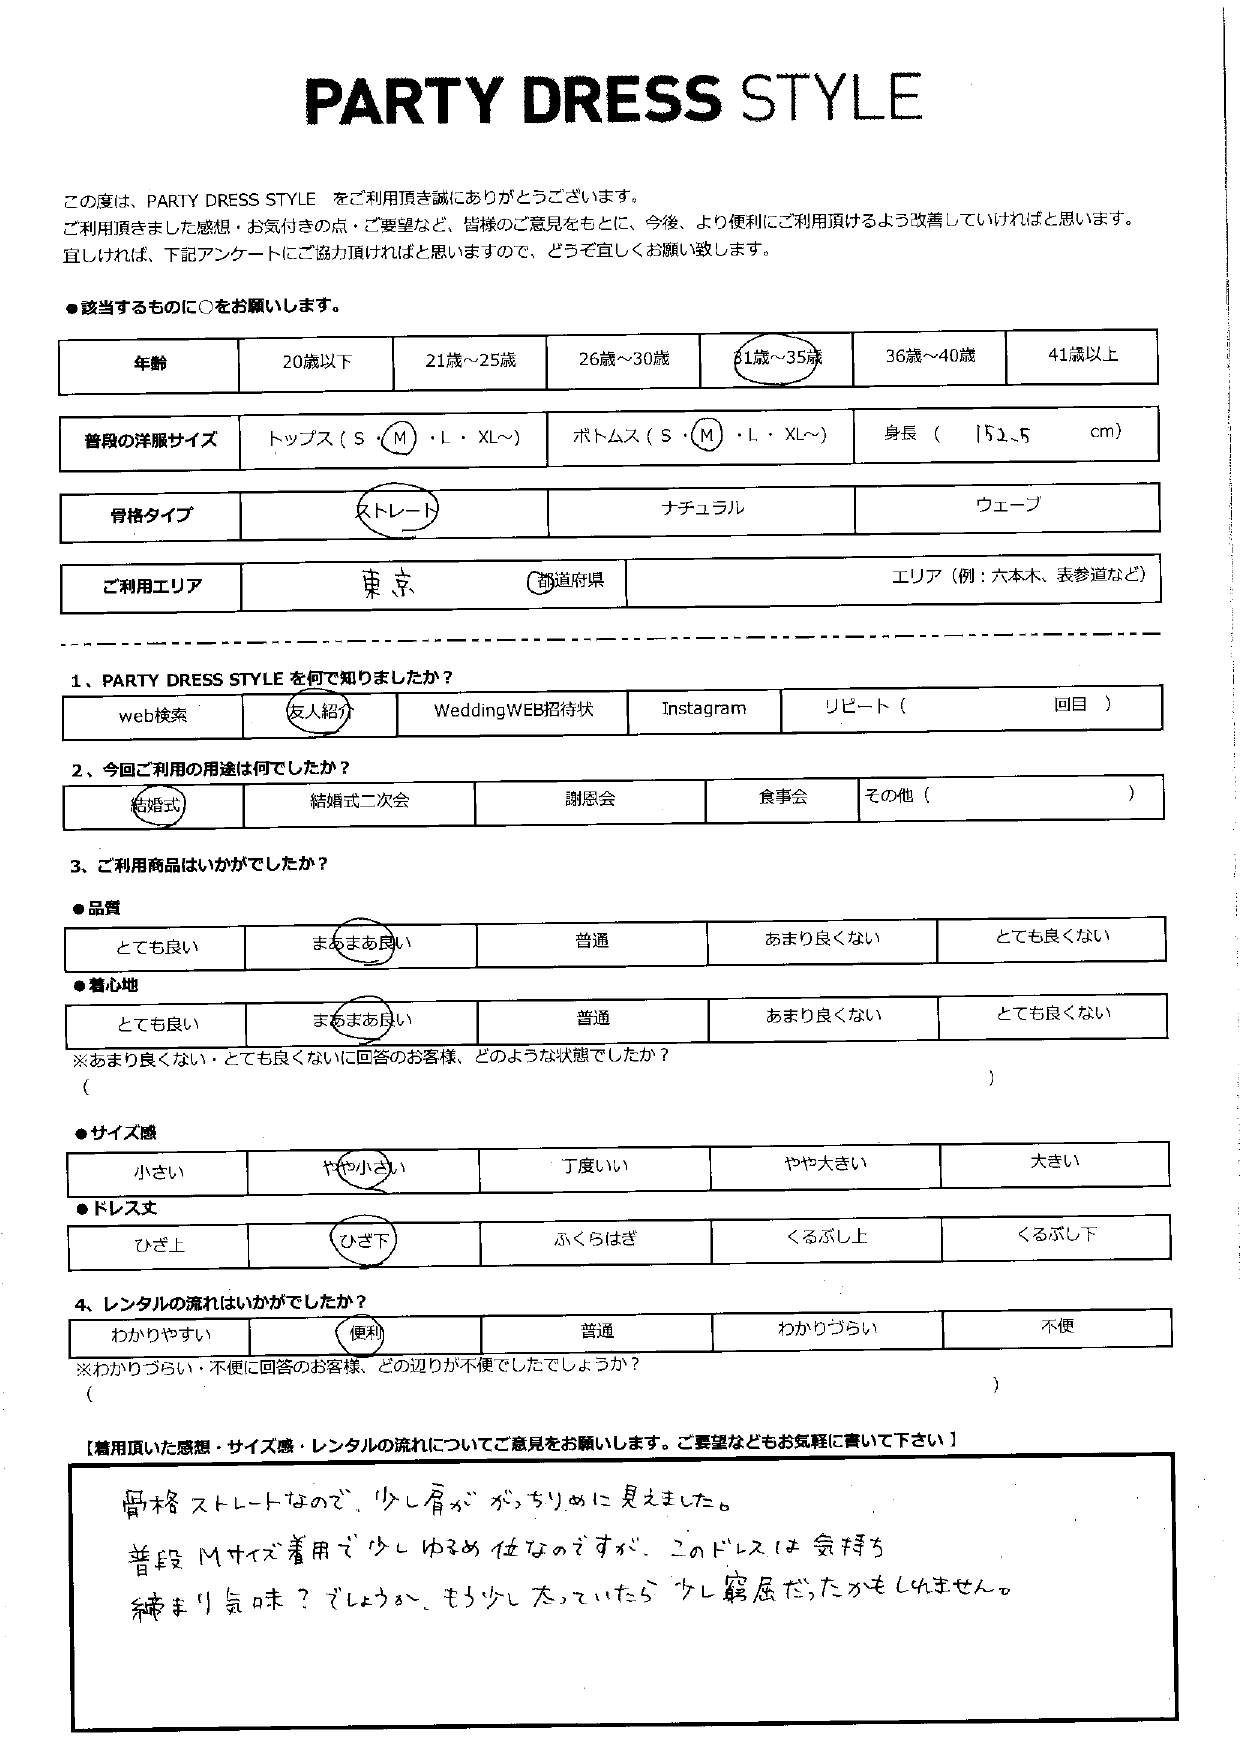 PARTY DRESS STYLE
この度は、PARTY DRESS STYLE をご利用頂き誠にありがとうございます。
ご利用頂きました感想・お気付きの点・ご要望など、皆様のご意見をもとに、今後、より便利にご利用頂けるよう改善していければと思います。
宜しければ、下記アンケートにご協力頂ければと思いますので、どうぞ宜しくお願い致します。
●該当するものに○をお願いします。
年齢 20歳以下 21歳～25歳 26歳～30歳 31歳～35歳 36歳～40歳 41歳以上
普段の洋服サイズ トップス（ S ・ M ・ L ・ XL～） ボトムス（ S ・ M ・ L ・ XL～） 身長 （ 152.5 cm）
骨格タイプ ストレート ナチュラル ウェーブ
ご利用エリア 東京 都道府県 エリア（例：六本木、表参道など）
1、PARTY DRESS STYLE を何で知りましたか？
web検索 友人紹介 WeddingWEB招待状 Instagram リピート（ 回目 ）
2、今回ご利用の用途は何でしたか？
結婚式 結婚式二次会 謝恩会 食事会 その他（ ）
3、ご利用商品はいかがでしたか？
●品質
とても良い まあまあ良い 普通 あまり良くない とても良くない
●着心地
とても良い まあまあ良い 普通 あまり良くない とても良くない
※あまり良くない・とても良くないに回答のお客様、どのような状態でしたか？
（ ）
●サイズ感
小さい やや小さい 丁度いい やや大きい 大きい
●ドレス丈
ひざ上 ひざ下 ふくらはぎ くるぶし上 くるぶし下
4、レンタルの流れはいかがでしたか？
わかりやすい 便利 普通 わかりづらい 不便
※わかりづらい・不便に回答のお客様、どの辺りが不便でしたでしょうか？
（ ）
【着用頂いた感想・サイズ感・レンタルの流れについてご意見をお願いします。ご要望などもお気軽に書いて下さい 】
骨格ストレートなので、少し肩が がっちりめに見えました。
普段 Mサイズ着用で少しゆるめ位なのですが、このドレスは気持ち
締まり気味？でしょうか、もう少し太っていたら少し窮屈だったかもしれません。